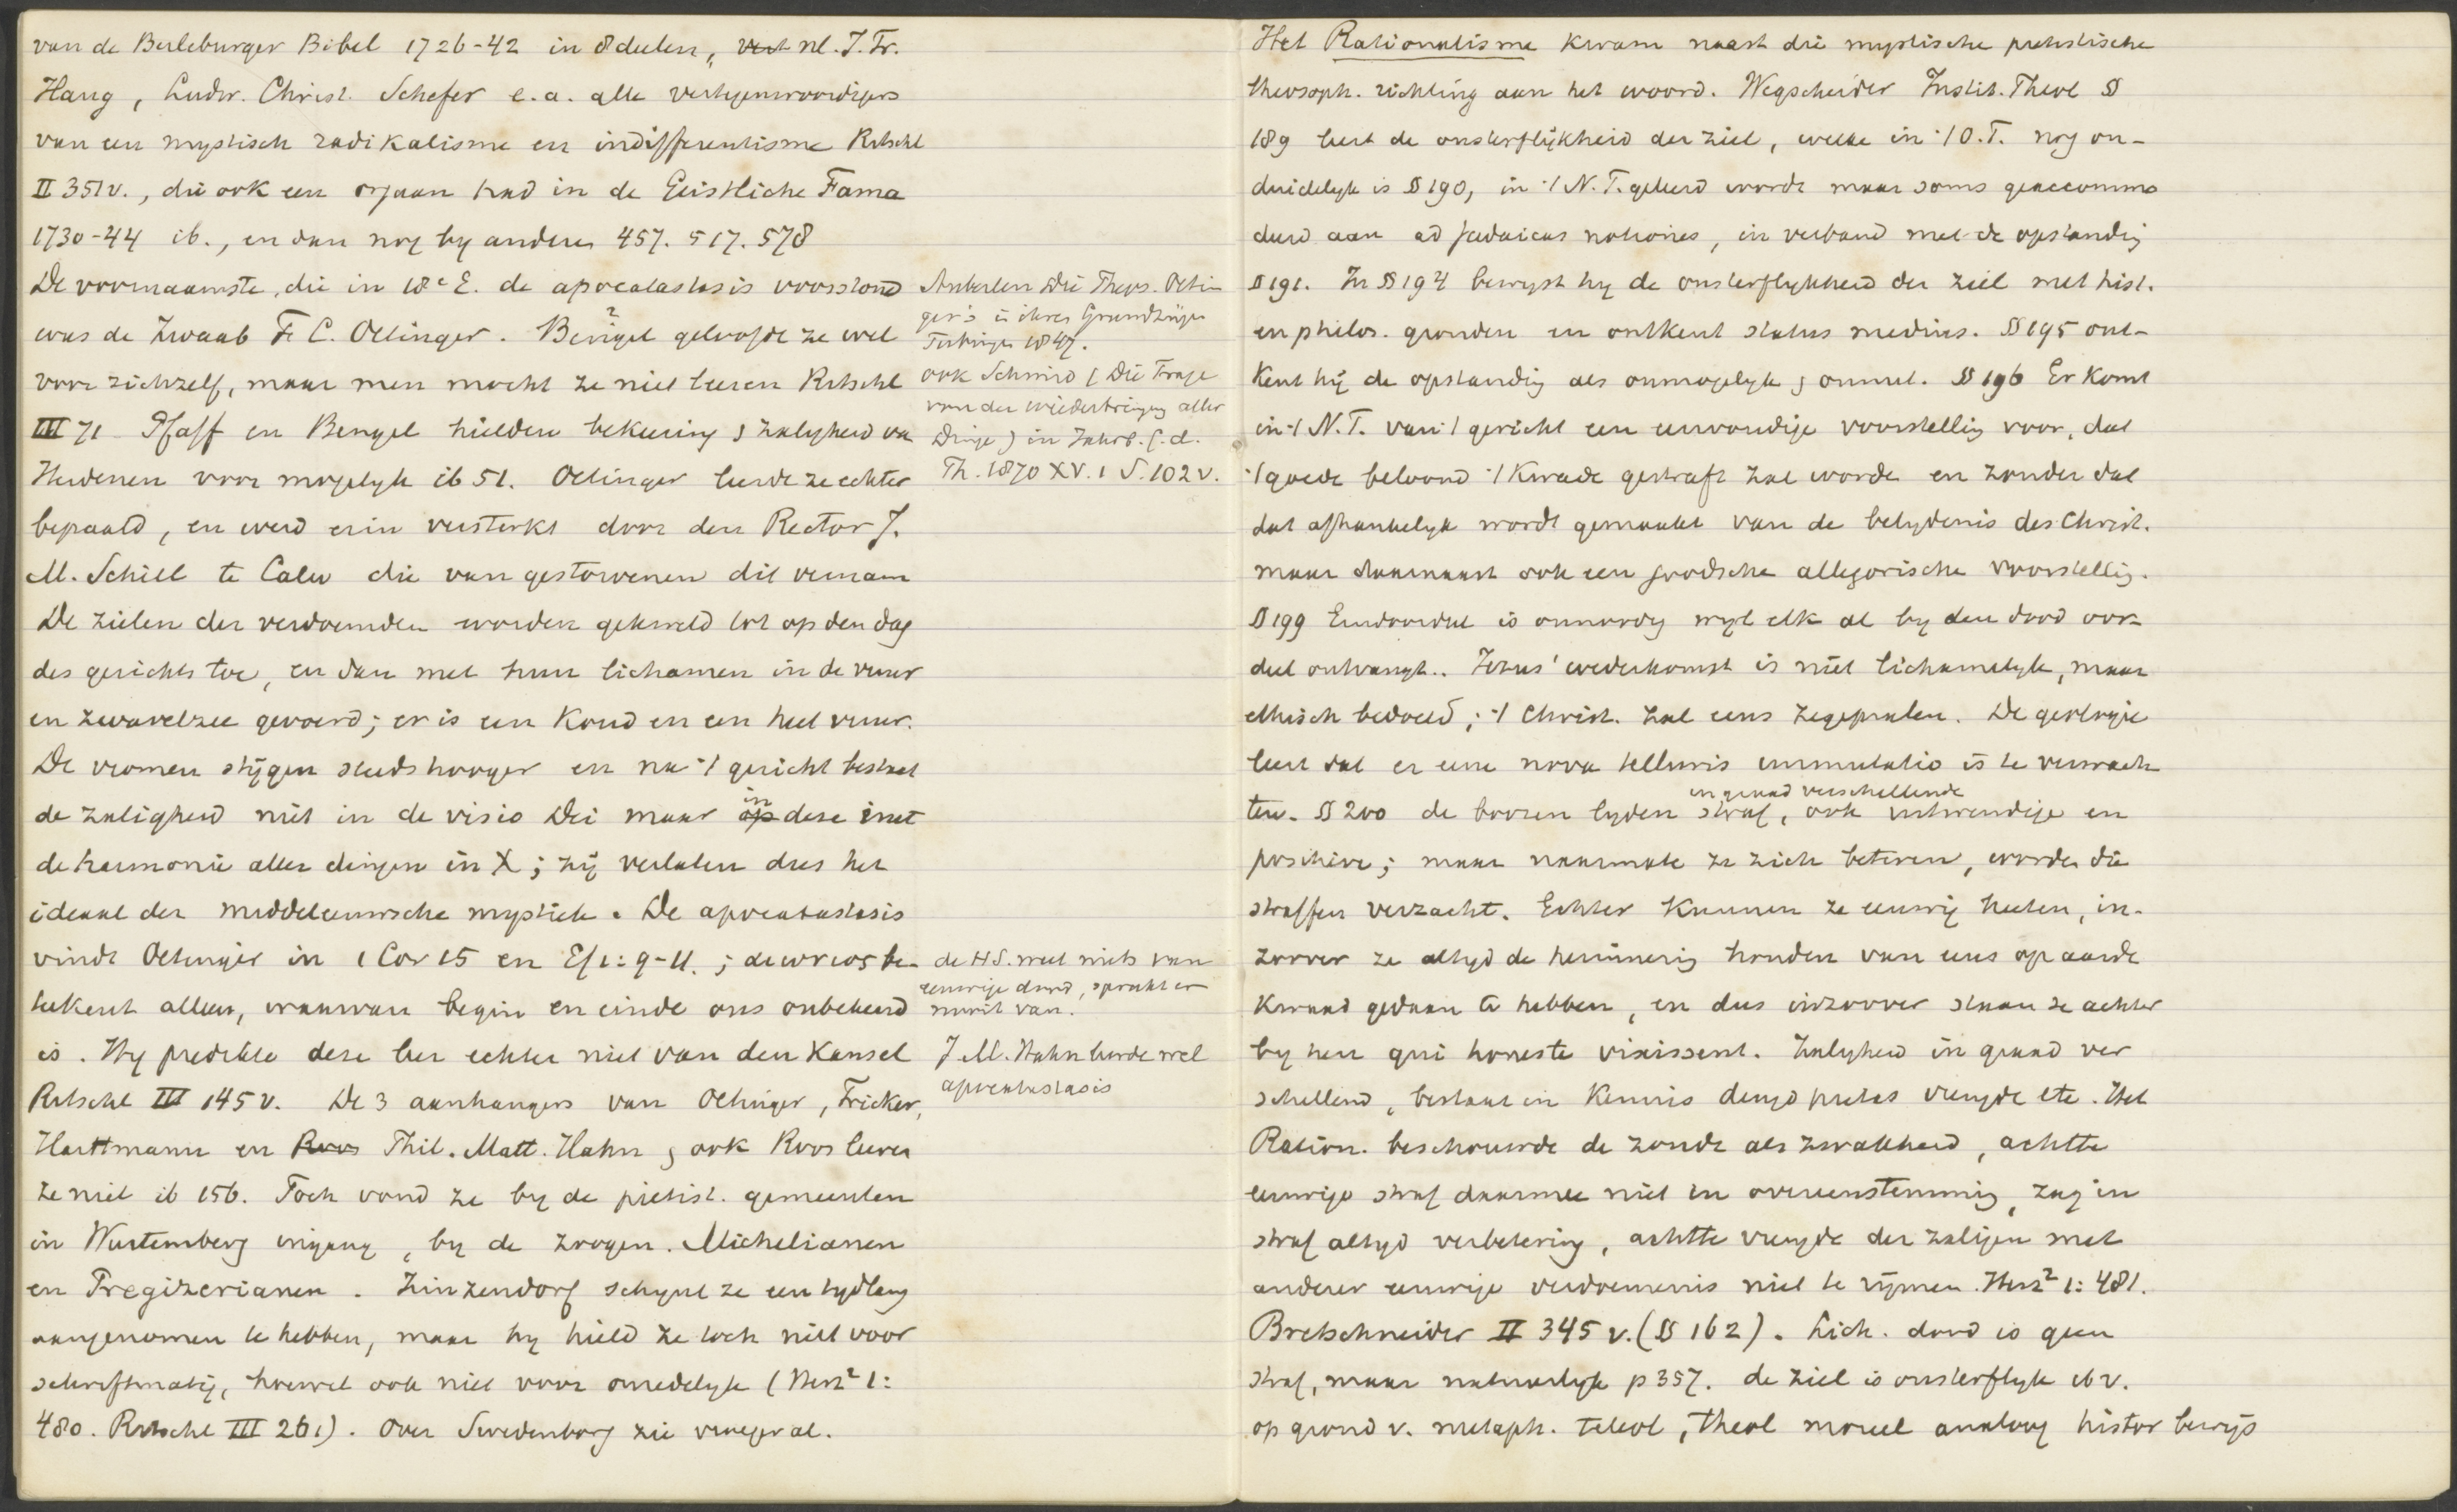 van de Berleburger Bibel 1726-42 in 8 deelen, nl. J. Fr.
Haug, Ludw. Christ. Schefer e.a. alle vertegenwoordigers
van een mystisch radikalisme en indifferentisme Ritschl
II 351v., die ook een orgaan had in de Geistliche Fama
1730-44 ib., en dan nog by anderen 457. 517. 578
De voornaamste, die in 18e E. de apocatastasis voorstond
was de Zwaab F. C. Oetinger. Bengel geloofde ze wel
voor zichzelf, maar men mocht ze niet leeren Ritschl
III 71 Pfaff en Bengel hielden bekeering & zaligheid van
Heidenen voor mogelyk ib 51. Oetinger leerde ze echter
bepaald, en werd erin versterkt door den Rector J.
M. Schill te Calw die van gestorvenen dit vernam
De zielen der verdoemden worden gekweld tot op den dag
des gerichts toe, en dan met hun lichamen in de vuur
en zwavelzee gevoerd; er is een koud en een heet vuur.
De vromen stijgen steeds hooger en na 't gericht bestaat
de zaligheid niet in de visio Dei maar in deze met
de harmonie aller dingen in X; zij verlaten dus het
ideaal der middeleeuwsche mystiek. De apocatastasis
vindt Oetinger in 1 Cor 15 en Ef 1: 9-11.; αιωνιος be-
teekent alleen, waarvan begin en einde ons onbekend
is. Hy predikte deze leer echter niet van den kansel
Ritschl III 145 v. De 3 aanhangers van Oetinger, Fricker,
Harttmann en Roos Phil. Matt. Hahn & ook Roos leeren
ze niet ib 156. Toch vond ze by de pietist. gemeenten
in Wurtemberg ingang, by de zoogen. Michelianen
en Pregizerianen. Zinzendorf schynt ze een tydlang
aangenomen te hebben, maar hy hield ze toch niet voor
schriftmatig, hoewel ook niet voor onredelyk (Herz² 1:
480. Ritschl III 261). Over Swedenborg zie vroeger al.
Auberlen Die Theos. Oetin
ger's in ihren Grundzügen
Tübingen 1847.
ook Schmid (Die Frage
von der Wiederbringung aller
Dinge) in Jahrb. f. d.
Th. 1870 XV. 1 S. 102 v.
de H.S. weet niets van
eeuwige dood, spreekt er
nooit van.
J. M. Hahn leerde wel
apocatastasis
Het Rationalisme kwam naast die mystische pietistische
theosoph. richting aan het woord. Wegscheider Instit. Theol §
189 leert de onsterflijkheid der ziel, welke in 't O.T. nog on-
duidelyk is § 190, in 't N.T. geleerd wordt maar soms geaccommo
deerd aan ad judaicas notiones, in verband met de opstanding
§ 191. In § 194 bewyst hy de onsterflykheid der ziel met hist.
en philos. gronden en ontkent status medius. § 195 ont-
kent hij de opstanding als onmogelyk & onnut. § 196 Er komt
in 't N.T. van 't gericht een eenvoudige voorstelling voor, dat
't goede beloond 't kwade gestraft zal worden en zonder dat
dat afhankelyk wordt gemaakt van de belydenis des Christ.
maar daarnaast ook een joodsche allegorische voorstelling.
§ 199 Eindoordeel is onnoodig wyl elk al by den dood oor-
deel ontvangt. Jezus' wederkomst is niet lichamelyk, maar
ethisch bedoeld; 't Christ. zal eens zegepralen. De geologie
leert dat er eene nova telluris immutatio is te verwach
ten. § 200 de boozen lyden in graad verschillende straf, ook uitwendige en
positieve; maar naarmate ze zich beteren, worden die
straffen verzacht. Echter kunnen ze eeuwig heeten, in-
zoover ze altyd de herinnering houden van eens op aarde
kwaad gedaan te hebben, en dus inzoover staan ze achter
by hen qui honeste vixissent. Zaligheid in graad ver
schillend, bestaat in kennis deugd pietas vreugde etc. Het
Ration. beschouwde de zonde als zwakheid, achtte
eeuwige straf daarmee niet in overeenstemming, zag in
straf altyd verbetering, achtte vreugde der zaligen met
anderer eeuwige verdoemenis niet te rijmen. Herz² 1: 481.
Bretschneider II 345 v. (§ 162). Lich. dood is geen
straf, maar natuurlyk p 357. de ziel is onsterflyk ib v.
op grond v. metaph. teleol, theol moreel analoog histor bewijs